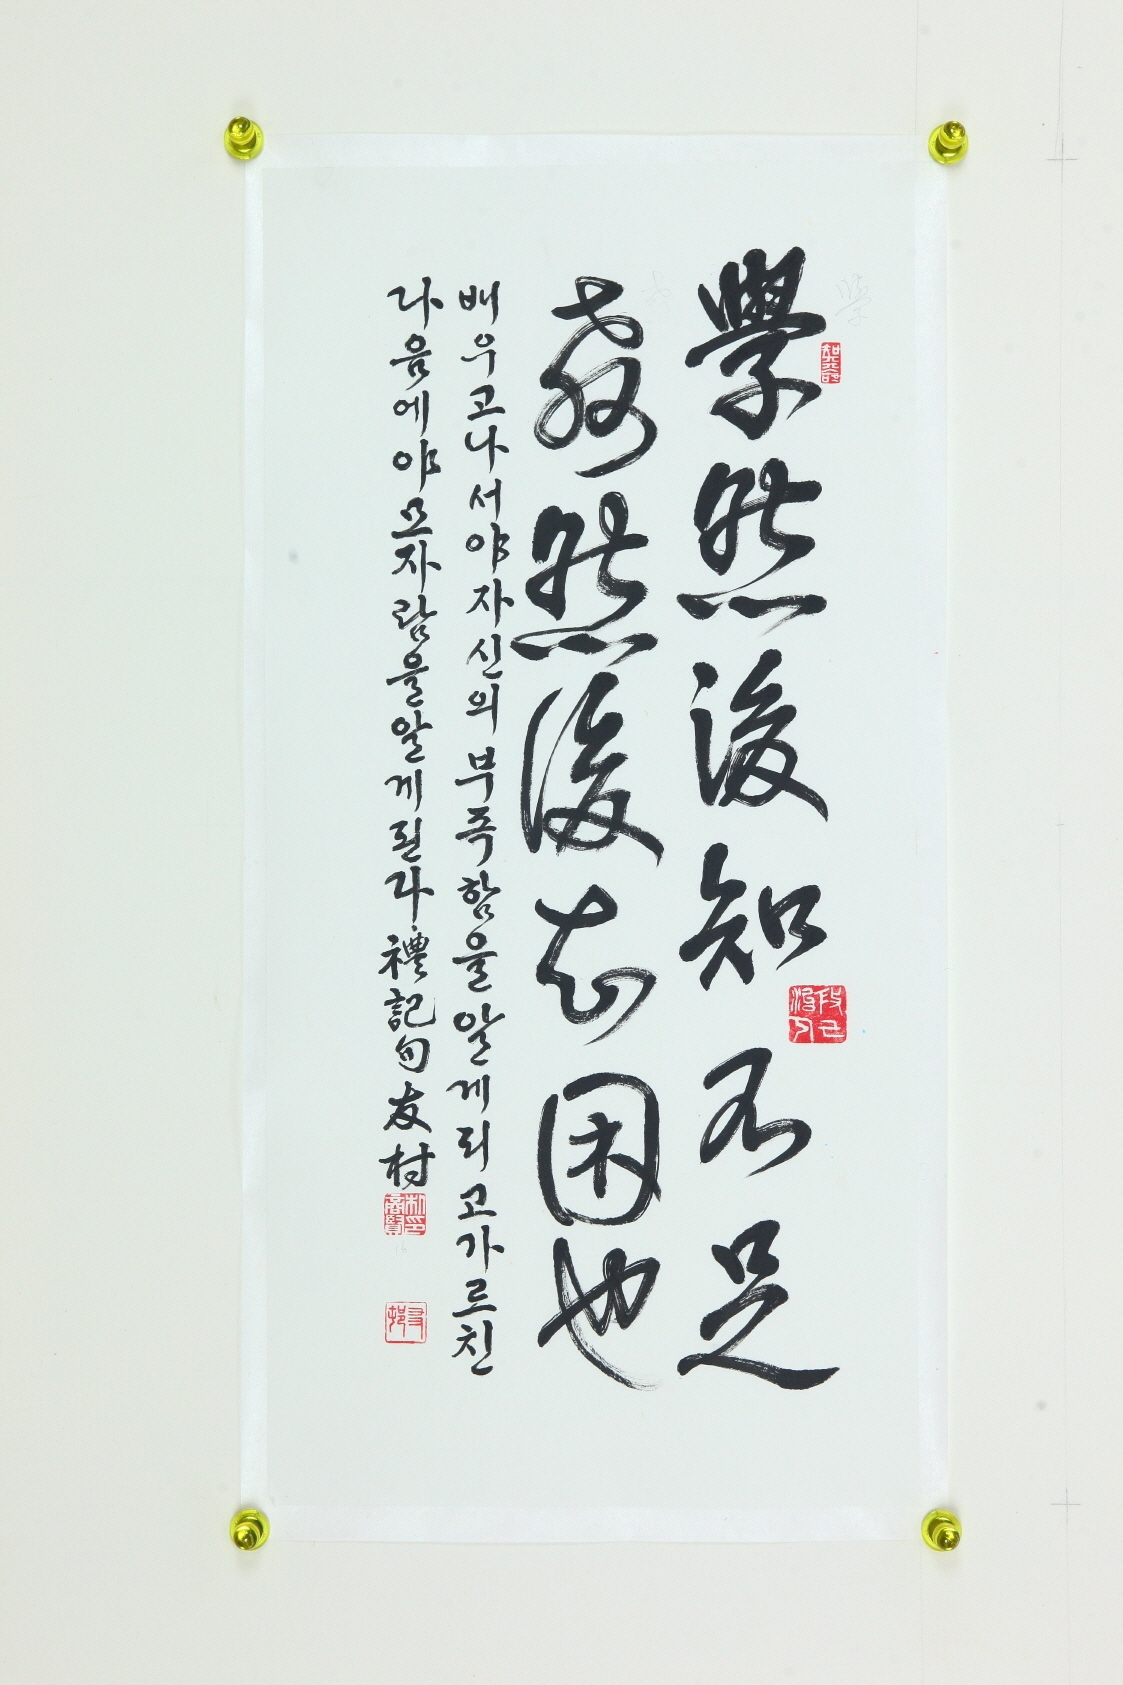 學然後知不足
敎然後知困也
배우고나서야자신의부족함을알게되고가르친
다음에야모자람을알게된다 禮記句 友村